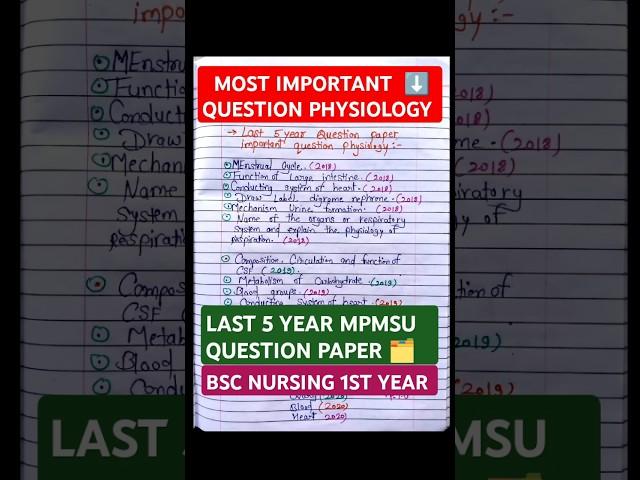 MOST IMPORTANT ⬇️
QUESTION PHYSIOLOGY
→ Last 5 year Question paper
important question physiology:-
MEnstrual Cycle. (2018)
Function of Large intestine. (2018)
Conducting system of heart. (2018)
Draw Label digrome nephrone. (2018)
Mechanism Urine formation. (2018)
Name of the organs or respiratory
system and explain the physiology of
respiration. (2018)
Composition, Circulation and function of
CSF (2019).
Metabolism of Carbohydrate. (2019)
Blood groups. (2019)
Conducting System of heart (2019)
LAST 5 YEAR MPMSU
QUESTION PAPER 🗂️
BSC NURSING 1ST YEAR
(2020)
Blood (2020)
Heart 2020)